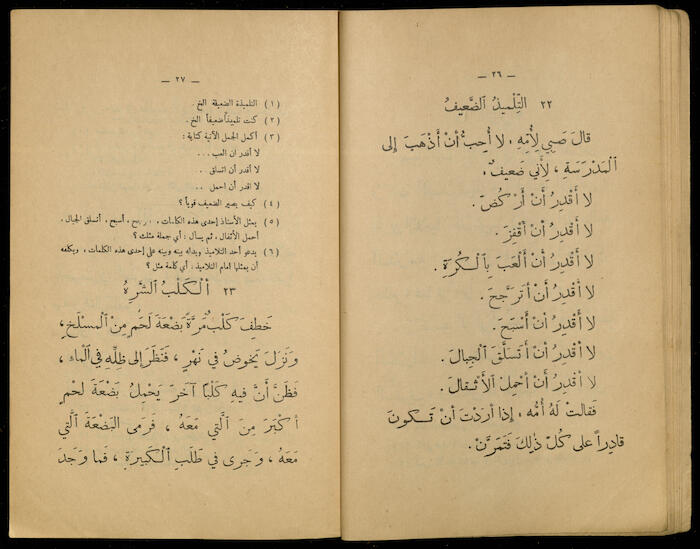 — ٢٦ —
٢٢ التِّلْميذُ الضَّعيفُ
قالَ صَبِي لِأُمِّهِ ، لا أُحِبُّ أنْ أَذْهَبَ إلى
المَدْرَسَةِ ، لِأَنِّي ضَعيفٌ.
لا أَقْدِرُ أَنْ أَرْكُضَ.
لا أَقْدِرُ أَنْ أَقْفِزَ.
لا اَقْدِرُ أَنْ أَلْعَبَ بِالْكُرَةِ.
لا اَقْدِرُ أَنْ أَتَرَجَّحَ.
لا أَقْدِرُ أَنْ أَسْبَحَ.
لا اَقْدِرُ أَنْ أَتَسَلَّقَ الْجِبالَ.
لا اَقْدِرُ أَنْ أَحْمِلَ الْأَثْقالَ.
فَقالَتْ لَهُ أُمُّه : إذا أَرَدْتَ أنْ تَكونَ
قادِراً على كُلِّ ذلِكَ فَتَمَرَّنْ.
— ٢٧ —
(١) التلميذة الضعيفة الخ .
(٢) كنت تلميذاً ضعيفاً الخ .
(٣) أكمل الجمل الآتية كتابة :
لا أقدر ان العب ...
لا أقدر أن اتسلق ..
لا اقدر أن احمل ..
(٤) كيف يصير الضعيف قوياً ؟
(٥) يمثل الأستاذ إحدى هذه الكلمات ، أترجح ، أسبح ، أتسلق الجبال ،
أحمل الأثقال ، ثم يسأل : أي جملة مثلت ؟
(٦) يدعو أحد التلاميذ ويدله بينه وبينه على إحدى هذه الكلمات ، ويكلفه
أن يمثلها امام التلاميذ : أي كلمة مثل ؟
٢٣ الْكَلْبُ الشَّرِهُ
خَطِفَ كَلْبٌ مَرَّةً بَضْعَةَ لَحْمٍ مِنَ الْمَسْلَخِ ،
وَنَزَلَ يَخوضُ في نَهْرٍ ، فَنَظَرَ إلى ظِلِّهِ في الْماءِ ،
فَظَنَّ أَنَّ فيهِ كَلْباً آخَرَ يَحْمِلُ بَضْعَةَ لَحْمٍ
أَكْبَرَ مِنَ الَّتي مَعَهُ ، فَرَمى الْبَضْعَةَ الَّتي
مَعَهُ ، وَجَرى في طَلَبِ الْكَبيرَةِ ، فَما وَجَدَ